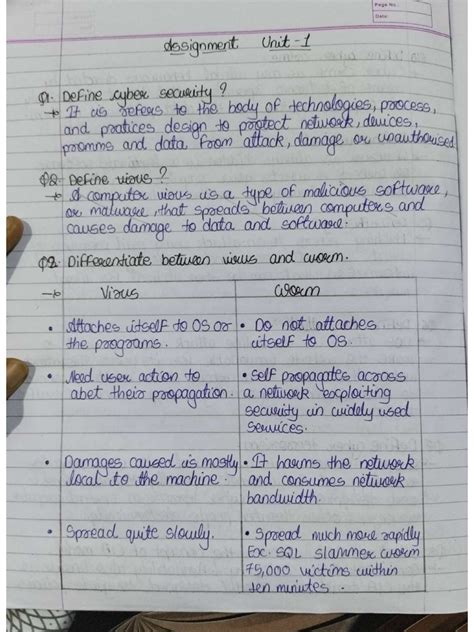 Page No.
Date:
Assignment Unit-1
Q1. Define cyber security?
→ It is refers to the body of technologies, process,
and pratices design to protect network, devices,
promms and data from attack, damage or unauthorised
Q2 Define virus?
→ A computer virus is a type of malicious software,
or malware, that spreads between computers and
causes damage to data and software.
Q2. Differentiate between virus and worm.
→ Virus
Worm
• Attaches itself to OS or
the programs.
• Do not attaches
itself to OS.
• Need user action to
abet their propagation.
• Self propagates across
a network exploiting
security in widely used
services.
• Damages caused is mostly
local to the machine.
• It harms the network
and consumes network
bandwidth.
• Spread quite slowly.
• Spread much more rapidly
Ex. SQL slammer worm
75,000 victims within
ten minutes.